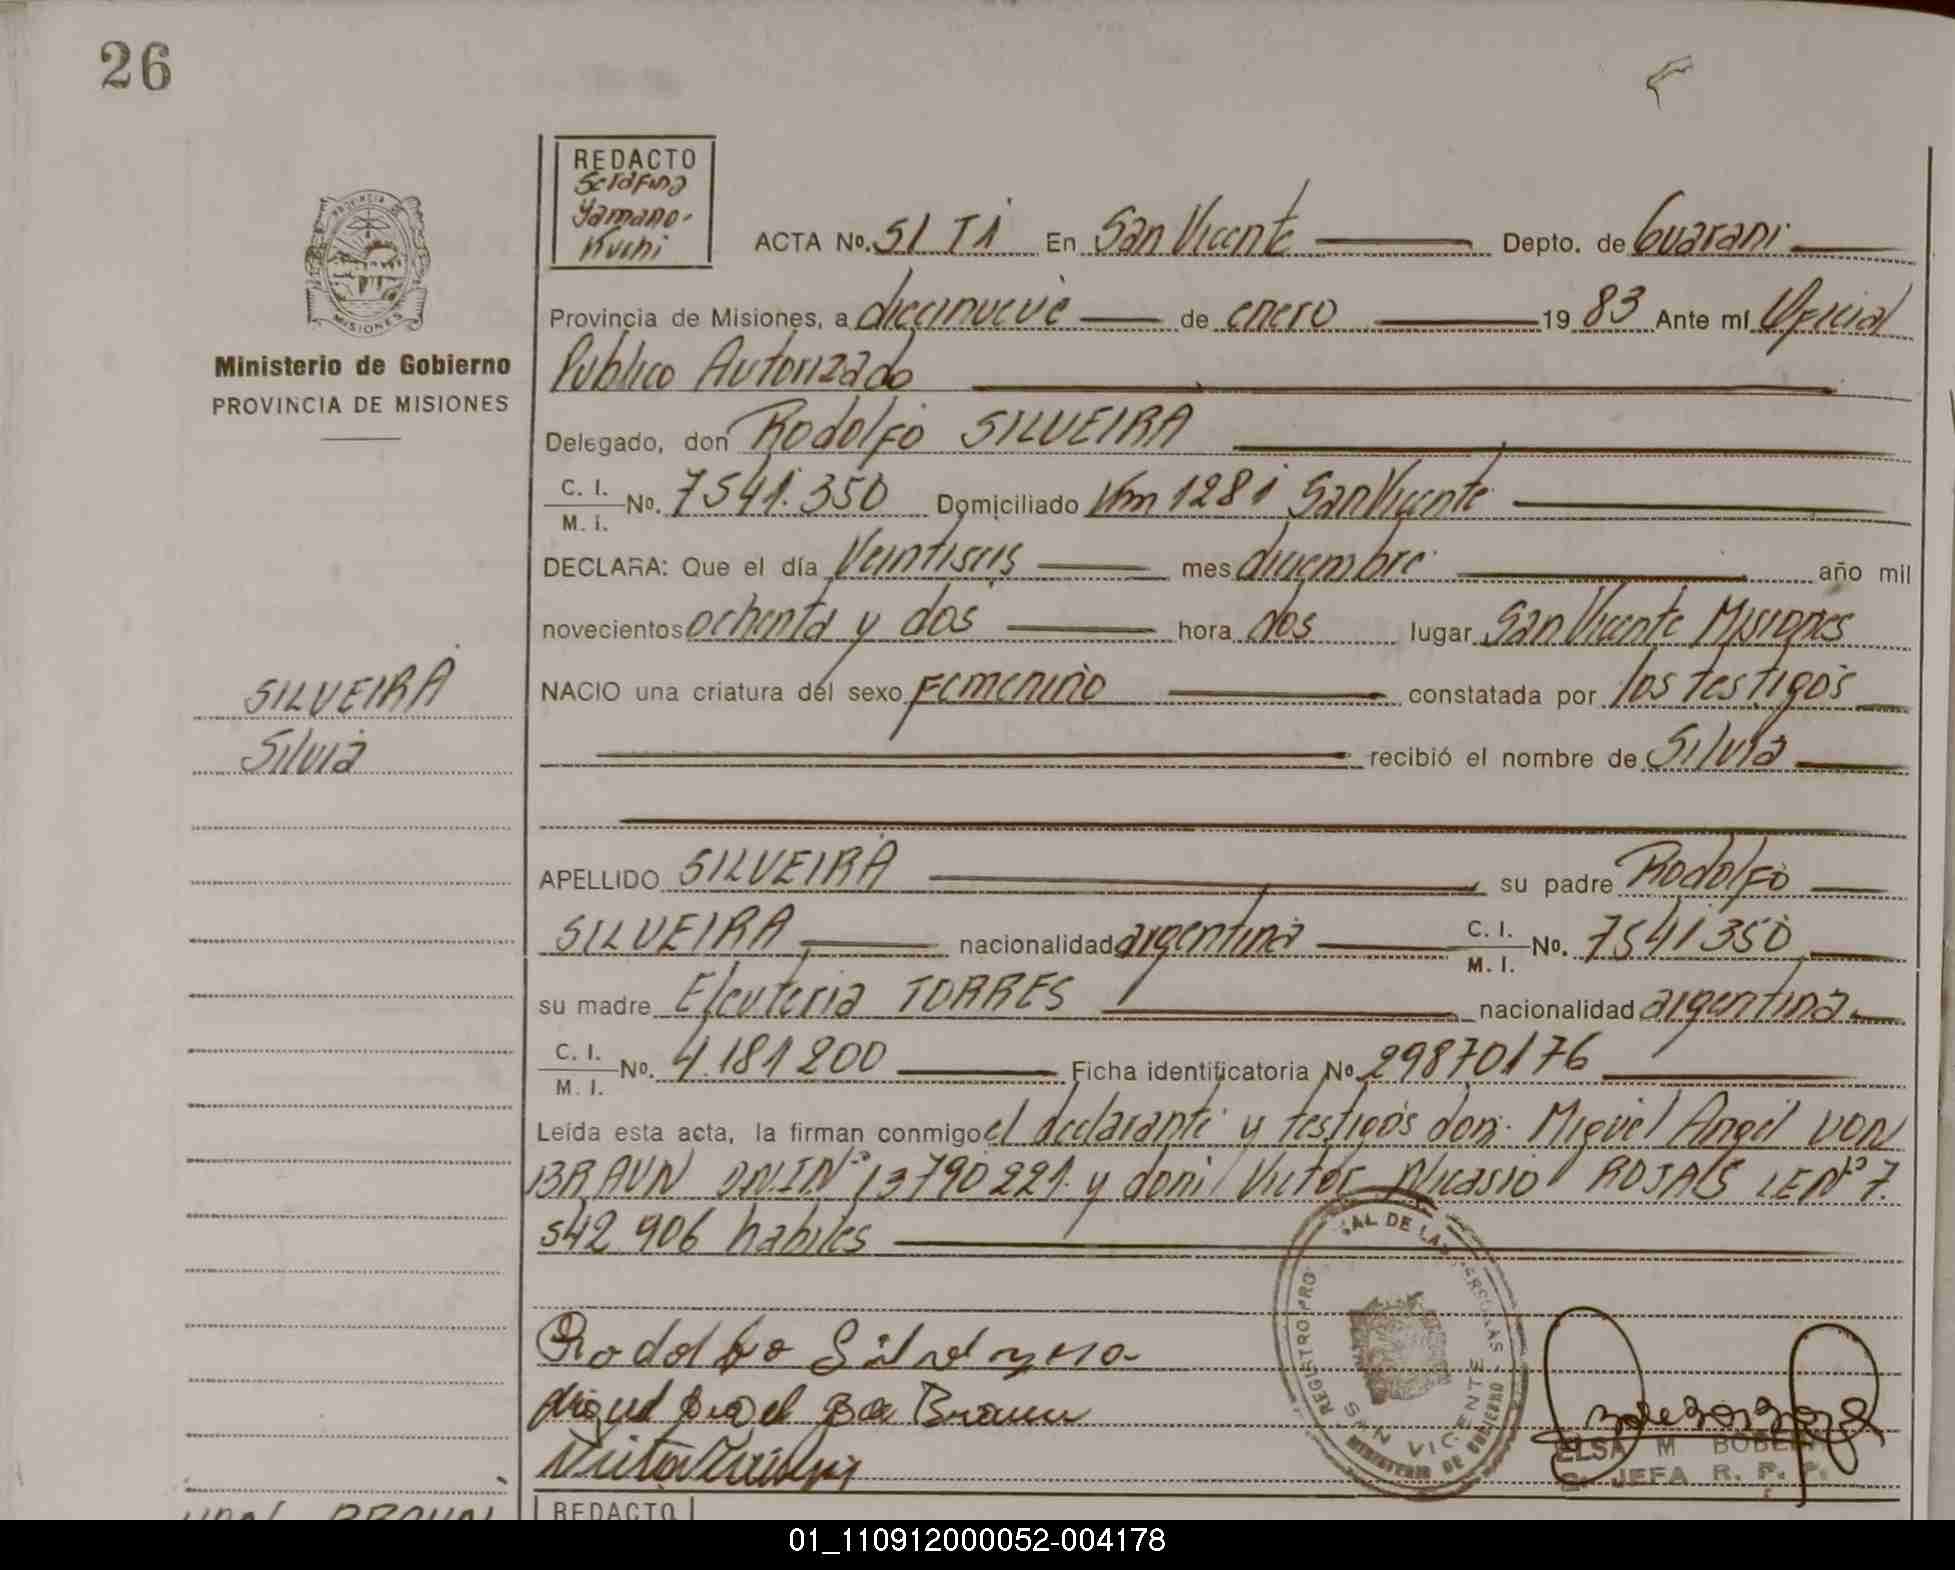 26
REDACTO
Serafina
Yamano-
Kuchi
ACTA No. 51 T1 En San Vicente Depto. de Guarani
Provincia de Misiones, a diecinueve de enero 19 83 Ante mi Oficial
Publico Autorizado
Delegado, don Rodolfo SILVEIRA
C. I.
M. I. No. 7541.350 Domiciliado Km 1281 San Vicente
DECLARA: Que el día Veintiseis mes diciembre año mil
novecientos ochenta y dos hora dos lugar San Vicente Misiones
NACIO una criatura del sexo Femenino constatada por los testigos
recibió el nombre de Silvia
APELLIDO SILVEIRA su padre Rodolfo
SILVEIRA nacionalidad argentina C. I.
M. I. No. 7541350
su madre Eleuteria TORRES nacionalidad argentina
C. I.
M. I. No. 4.181200 Ficha identificatoria No. 29870176
Leída esta acta, la firman conmigo el declarante y testigos don: Miguel Angel VON
BRAUN DNI Nº 13790221 y don: Victor Nicasio ROJAS LE Nº 7.
542 906 habiles
PROVINCIA DE
MISIONES
Ministerio de Gobierno
PROVINCIA DE MISIONES
SILVEIRA
Silvia
Rodolfo
Braun
Victor
REGISTRO PRO AL DE LAS
SAN VICENTE
MINISTERIO DE GOBIERNO
ELSA M
JEFA R. P. P.
VON BRAUN
REDACTO
01_110912000052-004178